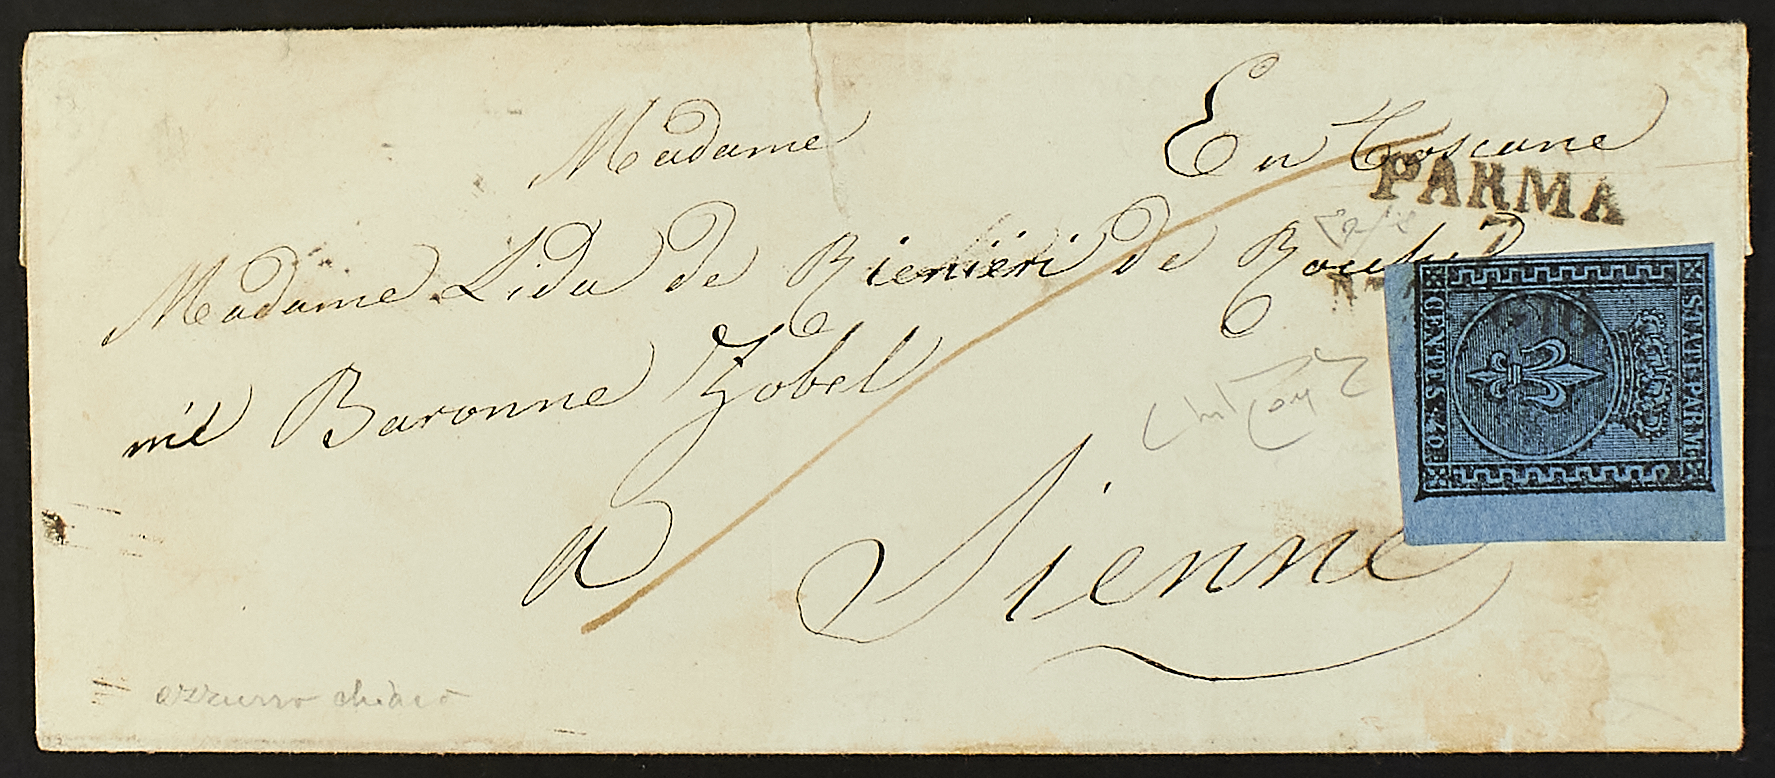 Madame
En Toscane
PARMA
Madame Lida de Rieniëri de
née Baronne Zobel
a Sienne
STATI PARM.
CENTES. 40
azzurro chiaro